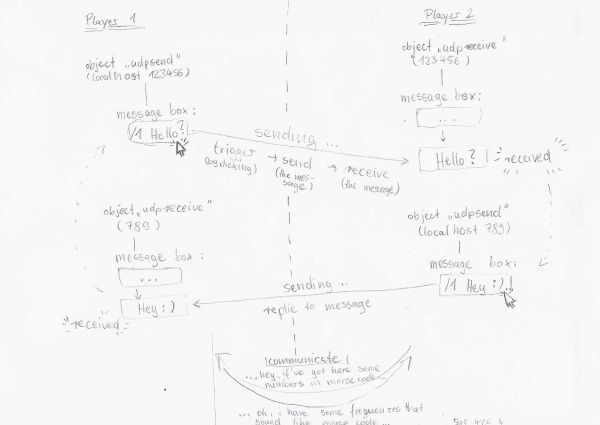 Player 1
object „udpsend"
(localhost 123456)
message box:
/1 Hello?
Player 2
object „udpreceive"
(123456)
message box:
...
Hello?
received
sending ...
trigger → send → receive
(by clicking) (the mes-
sage) (the message)
object „udpreceive"
(789)
message box:
...
Hey :)
received
object „udpsend"
(localhost 789)
message box:
/1 Hey :)
sending ...
replie to message
communicate
... hey, if've got here some
numbers in morse code...
... oh, i have some frequenzes that
sound like morse code ...